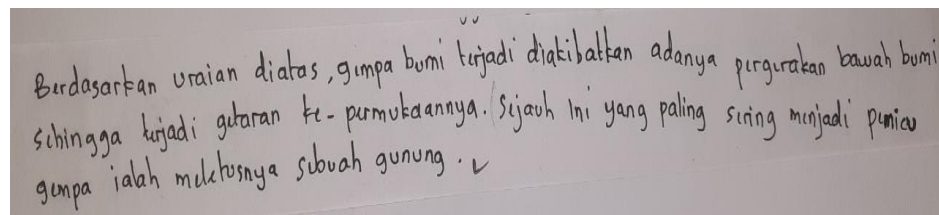 Berdasarkan uraian diatas, gempa bumi terjadi diakibatkan adanya pergerakan bawah bumi
sehingga terjadi getaran ke-permukaannya. Sejauh Ini yang paling sering menjadi pemicu
gempa ialah meletusnya sebuah gunung.